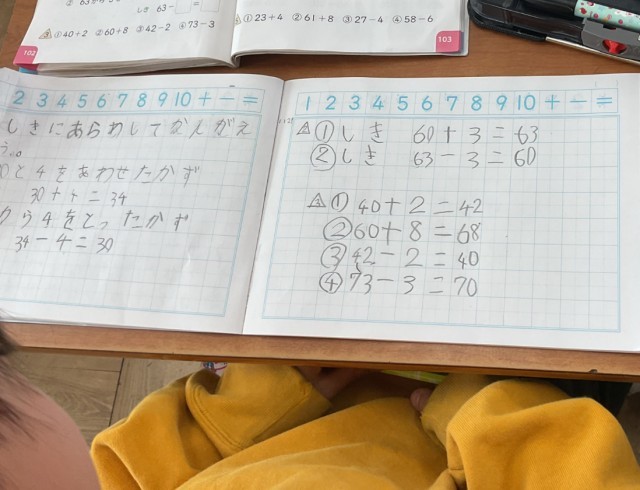 しき 63-□=
△3 ①40+2 ②60+8 ③42-2 ④73-3
102
①23+4 ②61+8 ③27-4 ④58-6
103
2 3 4 5 6 7 8 9 10 + - =
しきにあらわしてかんがえ
え。
と4をあわせたかず
30+4=34
から4をとったかず
34-4=30
1 2 3 4 5 6 7 8 9 10 + - =
△2 ①しき 60+3=63
②しき 63-3=60
△3 ① 40+2=42
②60+8=68
③42-2=40
④73-3=70